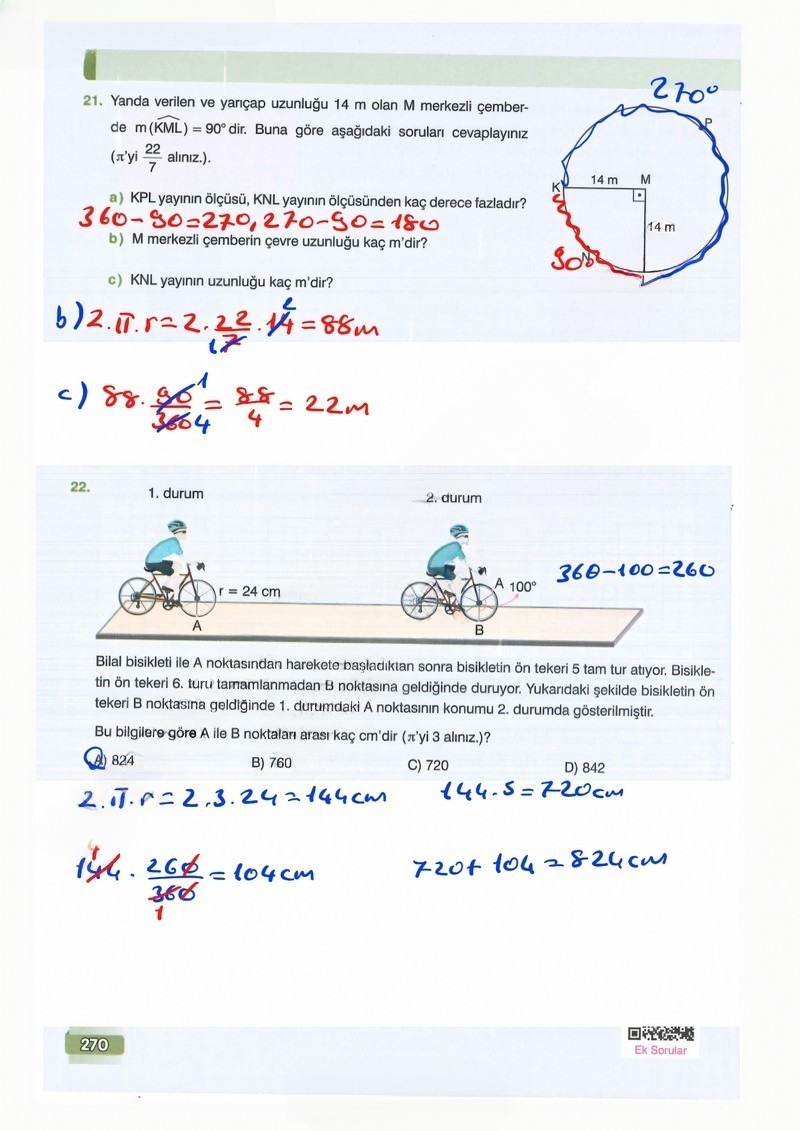 21. Yanda verilen ve yarıçap uzunluğu 14 m olan M merkezli çember-
de m(KML) = 90° dir. Buna göre aşağıdaki soruları cevaplayınız
(π'yi 22/7 alınız.).
a) KPL yayının ölçüsü, KNL yayının ölçüsünden kaç derece fazladır?
360-90=270, 270-90=180
b) M merkezli çemberin çevre uzunluğu kaç m'dir?
c) KNL yayının uzunluğu kaç m'dir?
270°
P
K
14 m
M
14 m
90°
N
L
b) 2.π.r = 2.22/7.14 = 88m
1
2
c) 88.90/360 = 88/4 = 22m
1
4
22.
1. durum
2. durum
r = 24 cm
A
A 100°
B
360-100=260
Bilal bisikleti ile A noktasından harekete başladıktan sonra bisikletin ön tekeri 5 tam tur atıyor. Bisikle-
tin ön tekeri 6. turu tamamlanmadan B noktasına geldiğinde duruyor. Yukarıdaki şekilde bisikletin ön
tekeri B noktasına geldiğinde 1. durumdaki A noktasının konumu 2. durumda gösterilmiştir.
Bu bilgilere göre A ile B noktaları arası kaç cm'dir (π'yi 3 alınız.)?
A) 824 B) 760 C) 720 D) 842
2.π.r = 2.3.24 = 144cm 144.5 = 720cm
144.260/360 = 104cm 720+104=824cm
4
1
270
Ek Sorular